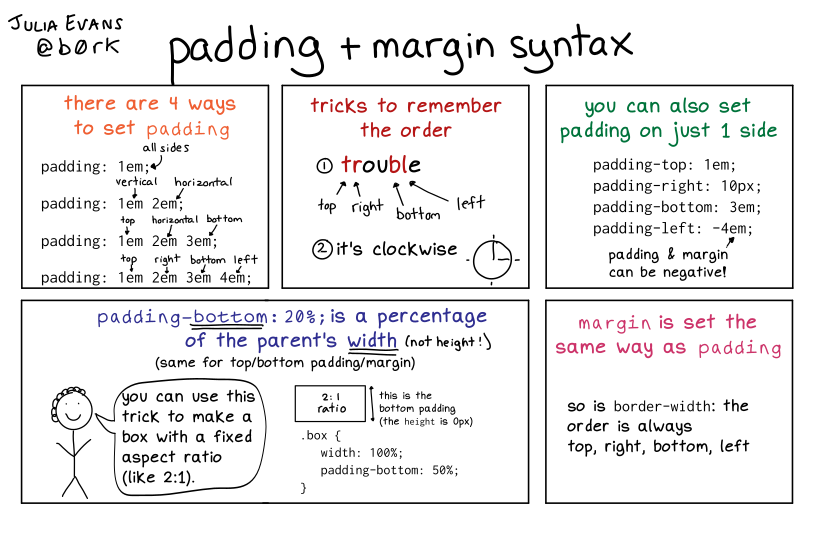 JULIA EVANS
@b0rk
padding + margin syntax
there are 4 ways
to set padding
all sides
padding: 1em;
vertical horizontal
padding: 1em 2em;
top horizontal bottom
padding: 1em 2em 3em;
top right bottom left
padding: 1em 2em 3em 4em;
tricks to remember
the order
① trouble
top right bottom left
② it's clockwise
you can also set
padding on just 1 side
padding-top: 1em;
padding-right: 10px;
padding-bottom: 3em;
padding-left: -4em;
padding & margin
can be negative!
padding-bottom: 20%; is a percentage
of the parent's width (not height!)
(same for top/bottom padding/margin)
you can use this
trick to make a
box with a fixed
aspect ratio
(like 2:1).
2:1
ratio
this is the
bottom padding
(the height is 0px)
.box {
width: 100%;
padding-bottom: 50%;
}
margin is set the
same way as padding
so is border-width: the
order is always
top, right, bottom, left